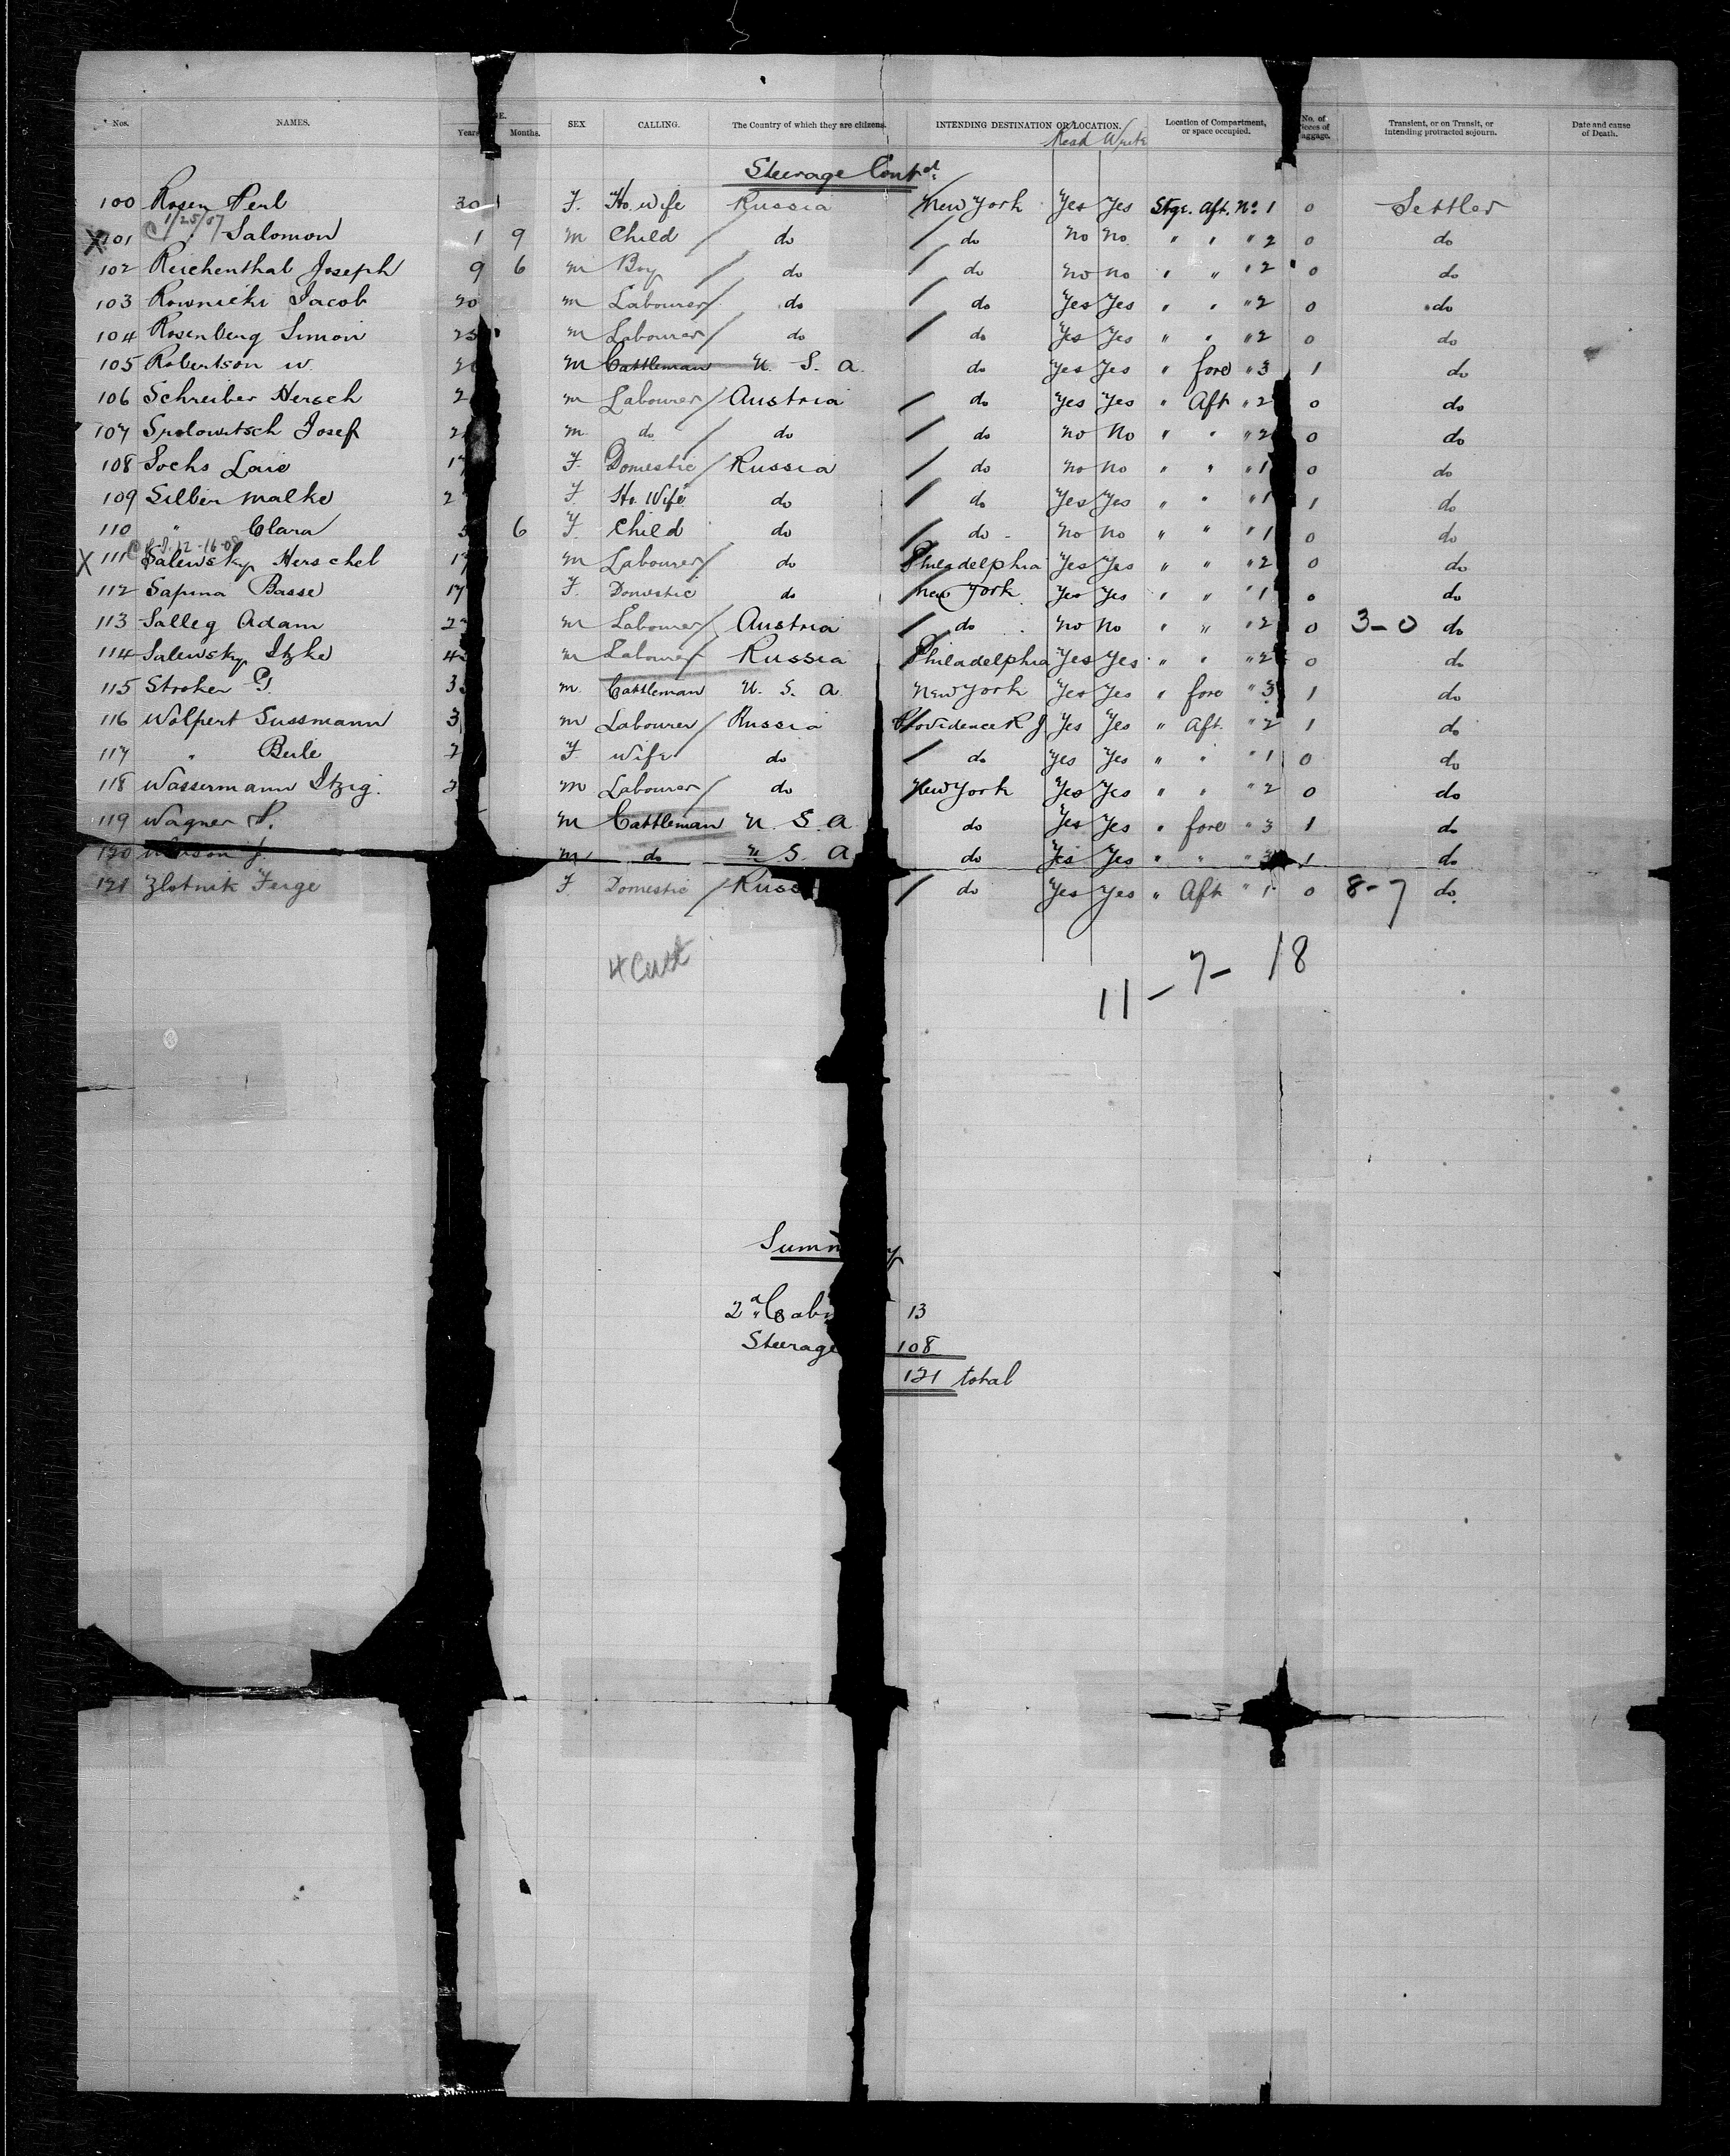 Nos. NAMES. Years Months. SEX CALLING. The Country of which they are citizens. INTENDING DESTINATION OR LOCATION. Location of Compartment, or space occupied. No. of Pieces of Baggage. Transient, or on Transit, or intending protracted sojourn. Date and cause of Death.
Read Write
Steerage Cont.d
100 Rosen Perl 30 F. Ho. wife Russia New York Yes Yes Stge. Aft. No. 1 0 Settler
1/25/57
X 101 " Salomon 1 9 m Child / do / do No No " " " 2 0 do
102 Reichenthal Joseph 9 6 m Boy / do / do No No " " " 2 0 do
103 Rownicki Jacob 20 m Labourer / do / do Yes Yes " " " 2 0 do
104 Rosenberg Simon 25 m Labourer / do / do Yes Yes " " " 2 0 do
105 Robertson W. m Cattleman U. S. A. do Yes Yes " fore " 3 1 do
106 Schreiber Hersch 2 m Labourer / Austria / do Yes Yes " Aft " 2 0 do
107 Josef 2 m do / do / do No No " " " 2 0 do
108 Sochs Laie 17 F. Domestic / Russia / do No No " " " 1 0 do
109 Silber Malke 2 F Ho. Wife do / do Yes Yes " " " 1 1 do
110 " Clara 6 F. Child do / do No No " " " 1 0 do
12-16-08
X 111 Salewsky Herschel 17 m Labourer / do Philadelphia Yes Yes " " " 2 0 do
112 Sapina Basse 17 F. Domestic do New York Yes Yes " " " 1 0 do
113 Salleg Adam 2 m Labourer / Austria / do No No " " " 2 0 3-0 do
114 Salewsky Itzke 4 m Labourer Russia Philadelphia Yes Yes " " " 2 0 do
115 Stroker G. 3 m Cattleman U. S. A. New York Yes Yes " fore " 3 1 do
116 Wolpert Sussmann 3 m Labourer / Russia Providence R J Yes Yes " Aft. " 2 1 do
117 " Beile 2 F. Wife do / do Yes Yes " " " 1 0 do
118 Wassermann Itzig. 2 m Labourer / do New York Yes Yes " " " 2 0 do
119 Wagner P. m Cattleman U. S. A do Yes Yes " fore " 3 1 do
120 J. m do U. S. A do Yes Yes " " " 3 1 do
121 Zlotnik Feige F. Domestic / Russ / do Yes Yes " Aft " 1 0 8-7 do.
4 Catt
11 - 7 - 18
Summ y
2d Cabi 13
Steerage 108
121 total